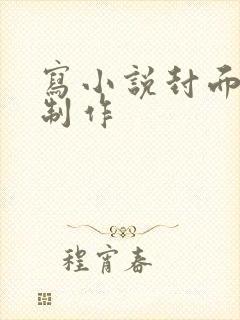 寫小說封面
制作
程宵春